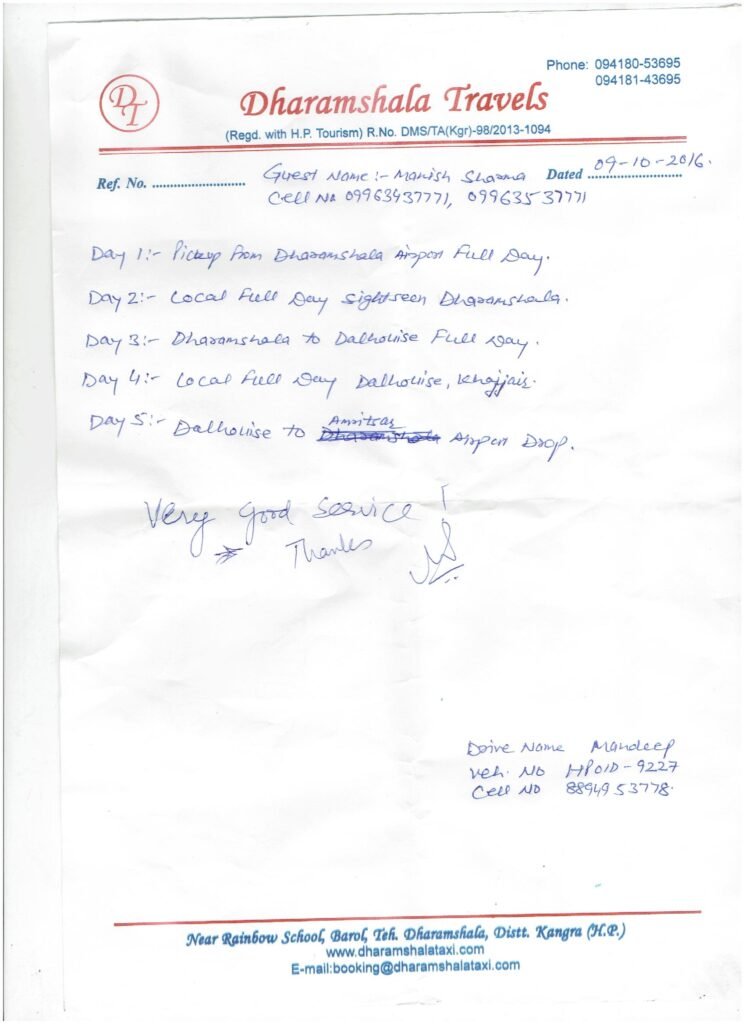 Phone: 094180-53695
094181-43695
DT
Dharamshala Travels
(Regd. with H.P. Tourism) R.No. DMS/TA(Kgr)-98/2013-1094
Ref. No. ........................... Guest Name :- Manish Sharma Dated 09-10-2016.
Cell No 09963437771, 09963537771
Day 1:- Pickup from Dharamshala Airport Full Day.
Day 2:- Local Full Day Sightseen Dharamshala.
Day 3:- Dharamshala to Dalhouise Full Day.
Day 4:- Local Full Day Dalhouise, Khajjair.
Day 5:- Dalhouise to Amritsar Dharamshala Airport Drop.
Very good service !
Thanks
Drive Name Mandeep
Veh. No HP01D-9227
Cell No 8894953778.
Near Rainbow School, Barol, Teh. Dharamshala, Distt. Kangra (H.P.)
www.dharamshalataxi.com
E-mail:booking@dharamshalataxi.com